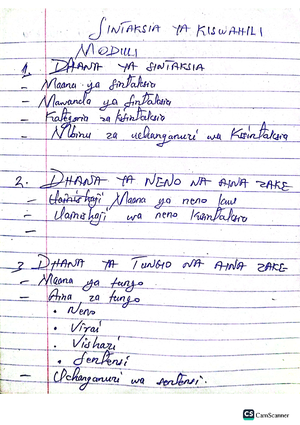 SINTAKSIA YA KISWAHILI
MODULI
1. DHANA YA SINTAKSIA
- Maana ya Sintaksia
- Mawanda ya Sintaksia
- Kategoria za kisintaksia
- Mbinu za uchanganuzi wa Kisintaksia
2. DHANA YA NENO NA AINA ZAKE
- Uainishaji Maana ya neno kama
- Uainishaji wa neno Kisintaksia
-
3 DHANA YA TUNGO NA AINA ZAKE
- Maana ya tungo
- Aina za tungo
• Neno
• Virai
• Vishazi
• Sentensi
- Uchanganuzi wa sentensi.
CS CamScanner